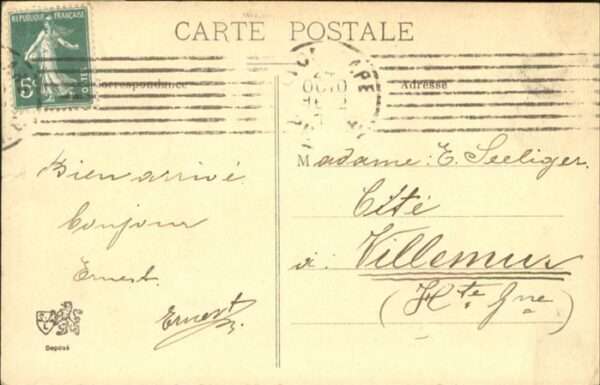 CARTE POSTALE
REPUBLIQUE FRANÇAISE
5c
POSTES
Correspondance
Adresse
24
OCT
Bien arrivé
bonjour
Ernest.
Ernest
Déposé
Madame: E. Seeliger
Cité
à: Villemur
(Hte Gne)